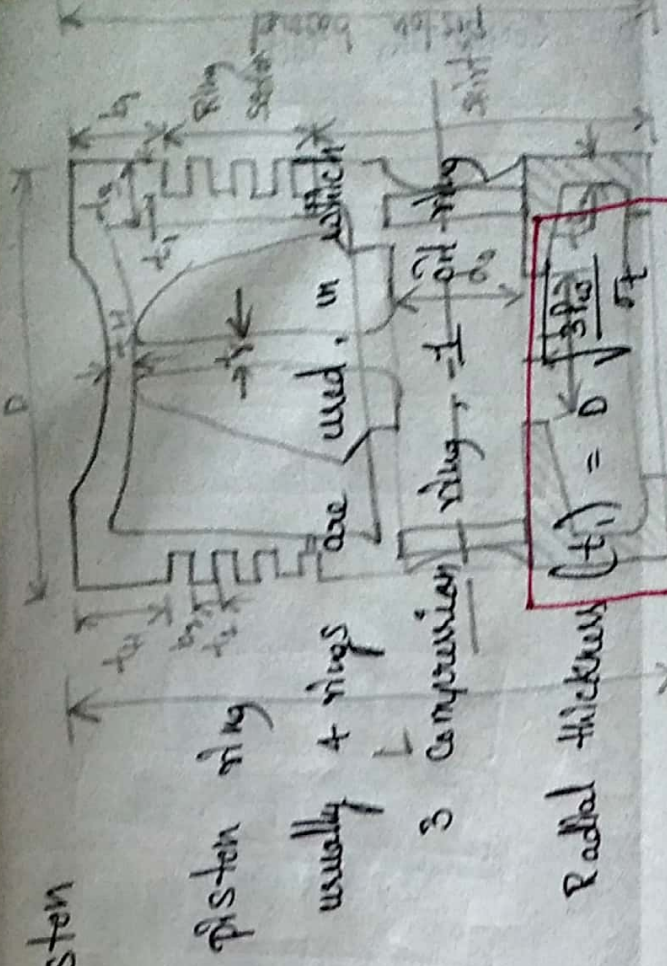 ston
piston ring
usually 4 rings are used, in which
3 compression ring, 1 oil ring
Radial thickness (t₁) = D √(3Pw/σt)
D
tH
b2
t2
tH
b1
t1
Ring
section
d0
piston barrel